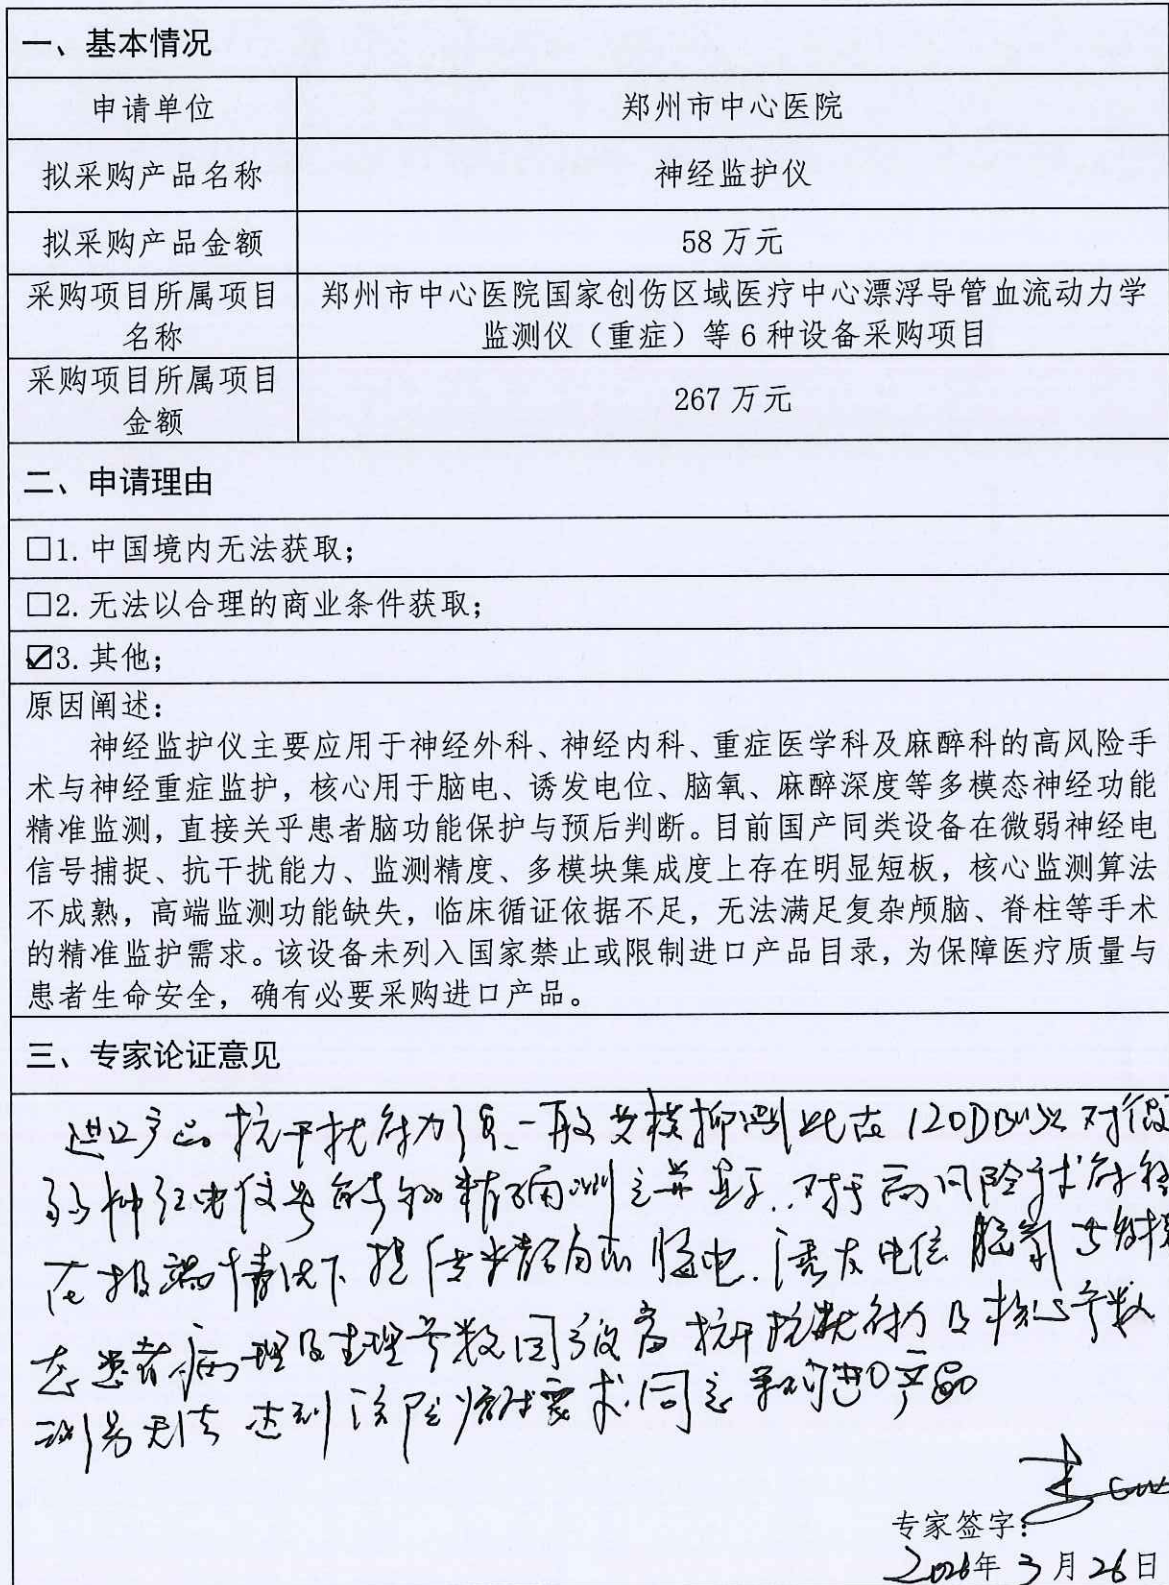 一、基本情况
申请单位
郑州市中心医院
拟采购产品名称
神经监护仪
拟采购产品金额
58万元
采购项目所属项目
名称
郑州市中心医院国家创伤区域医疗中心漂浮导管血流动力学
监测仪（重症）等6种设备采购项目
采购项目所属项目
金额
267万元
二、申请理由
□1.中国境内无法获取；
□2.无法以合理的商业条件获取；
☑3.其他；
原因阐述：
神经监护仪主要应用于神经外科、神经内科、重症医学科及麻醉科的高风险手
术与神经重症监护，核心用于脑电、诱发电位、脑氧、麻醉深度等多模态神经功能
精准监测，直接关乎患者脑功能保护与预后判断。目前国产同类设备在微弱神经电
信号捕捉、抗干扰能力、监测精度、多模块集成度上存在明显短板，核心监测算法
不成熟，高端监测功能缺失，临床循证依据不足，无法满足复杂颅脑、脊柱等手术
的精准监护需求。该设备未列入国家禁止或限制进口产品目录，为保障医疗质量与
患者生命安全，确有必要采购进口产品。
三、专家论证意见
进口产品抗干扰能力强一般共模抑制比在120DB以 对微
弱神经电信号能够精确测 对于高风险手术能够
在极端情况下提供精确的脑电.诱发电位 脑氧
态患者病理及生理参数国产设备抗干扰能力及核心参数
无法达到该院临床要求.同意采购进口产品
专家签字：
2026年3月26日